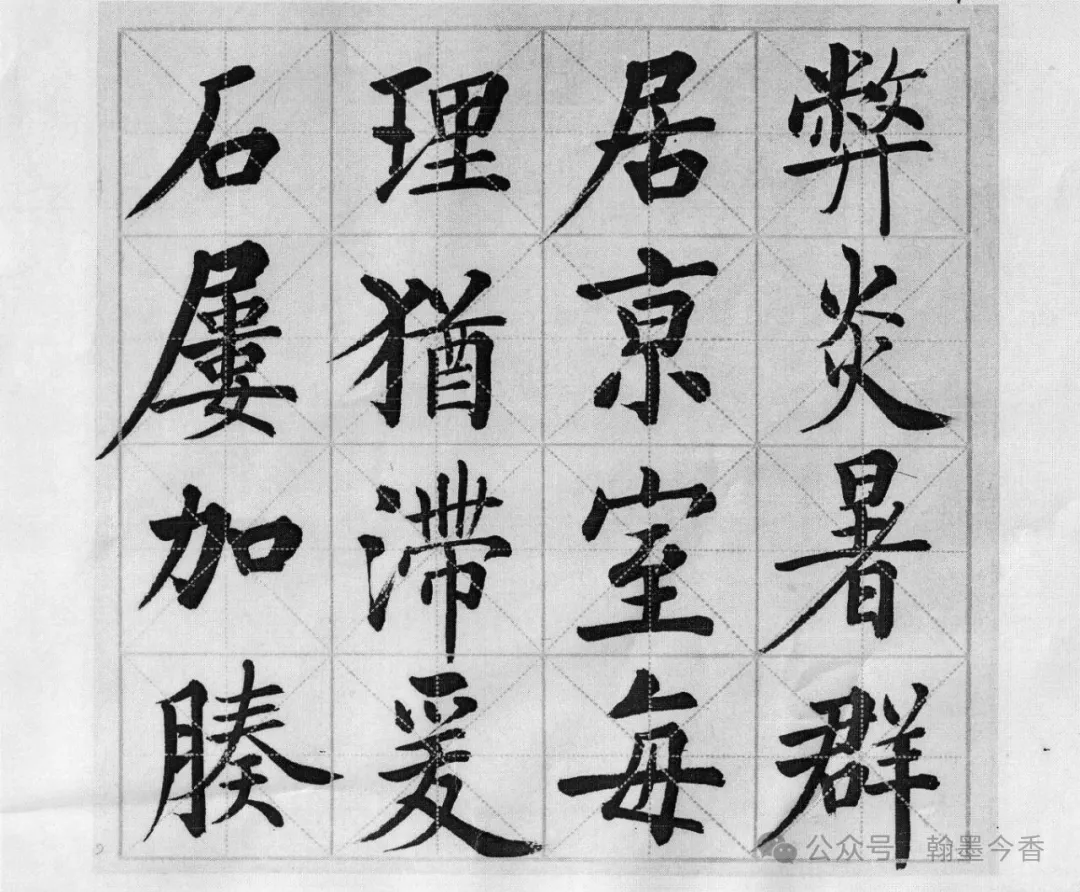 石屢加腠
理猶滯爰
居亰室每
弊炎暑群
公众号 翰墨今香